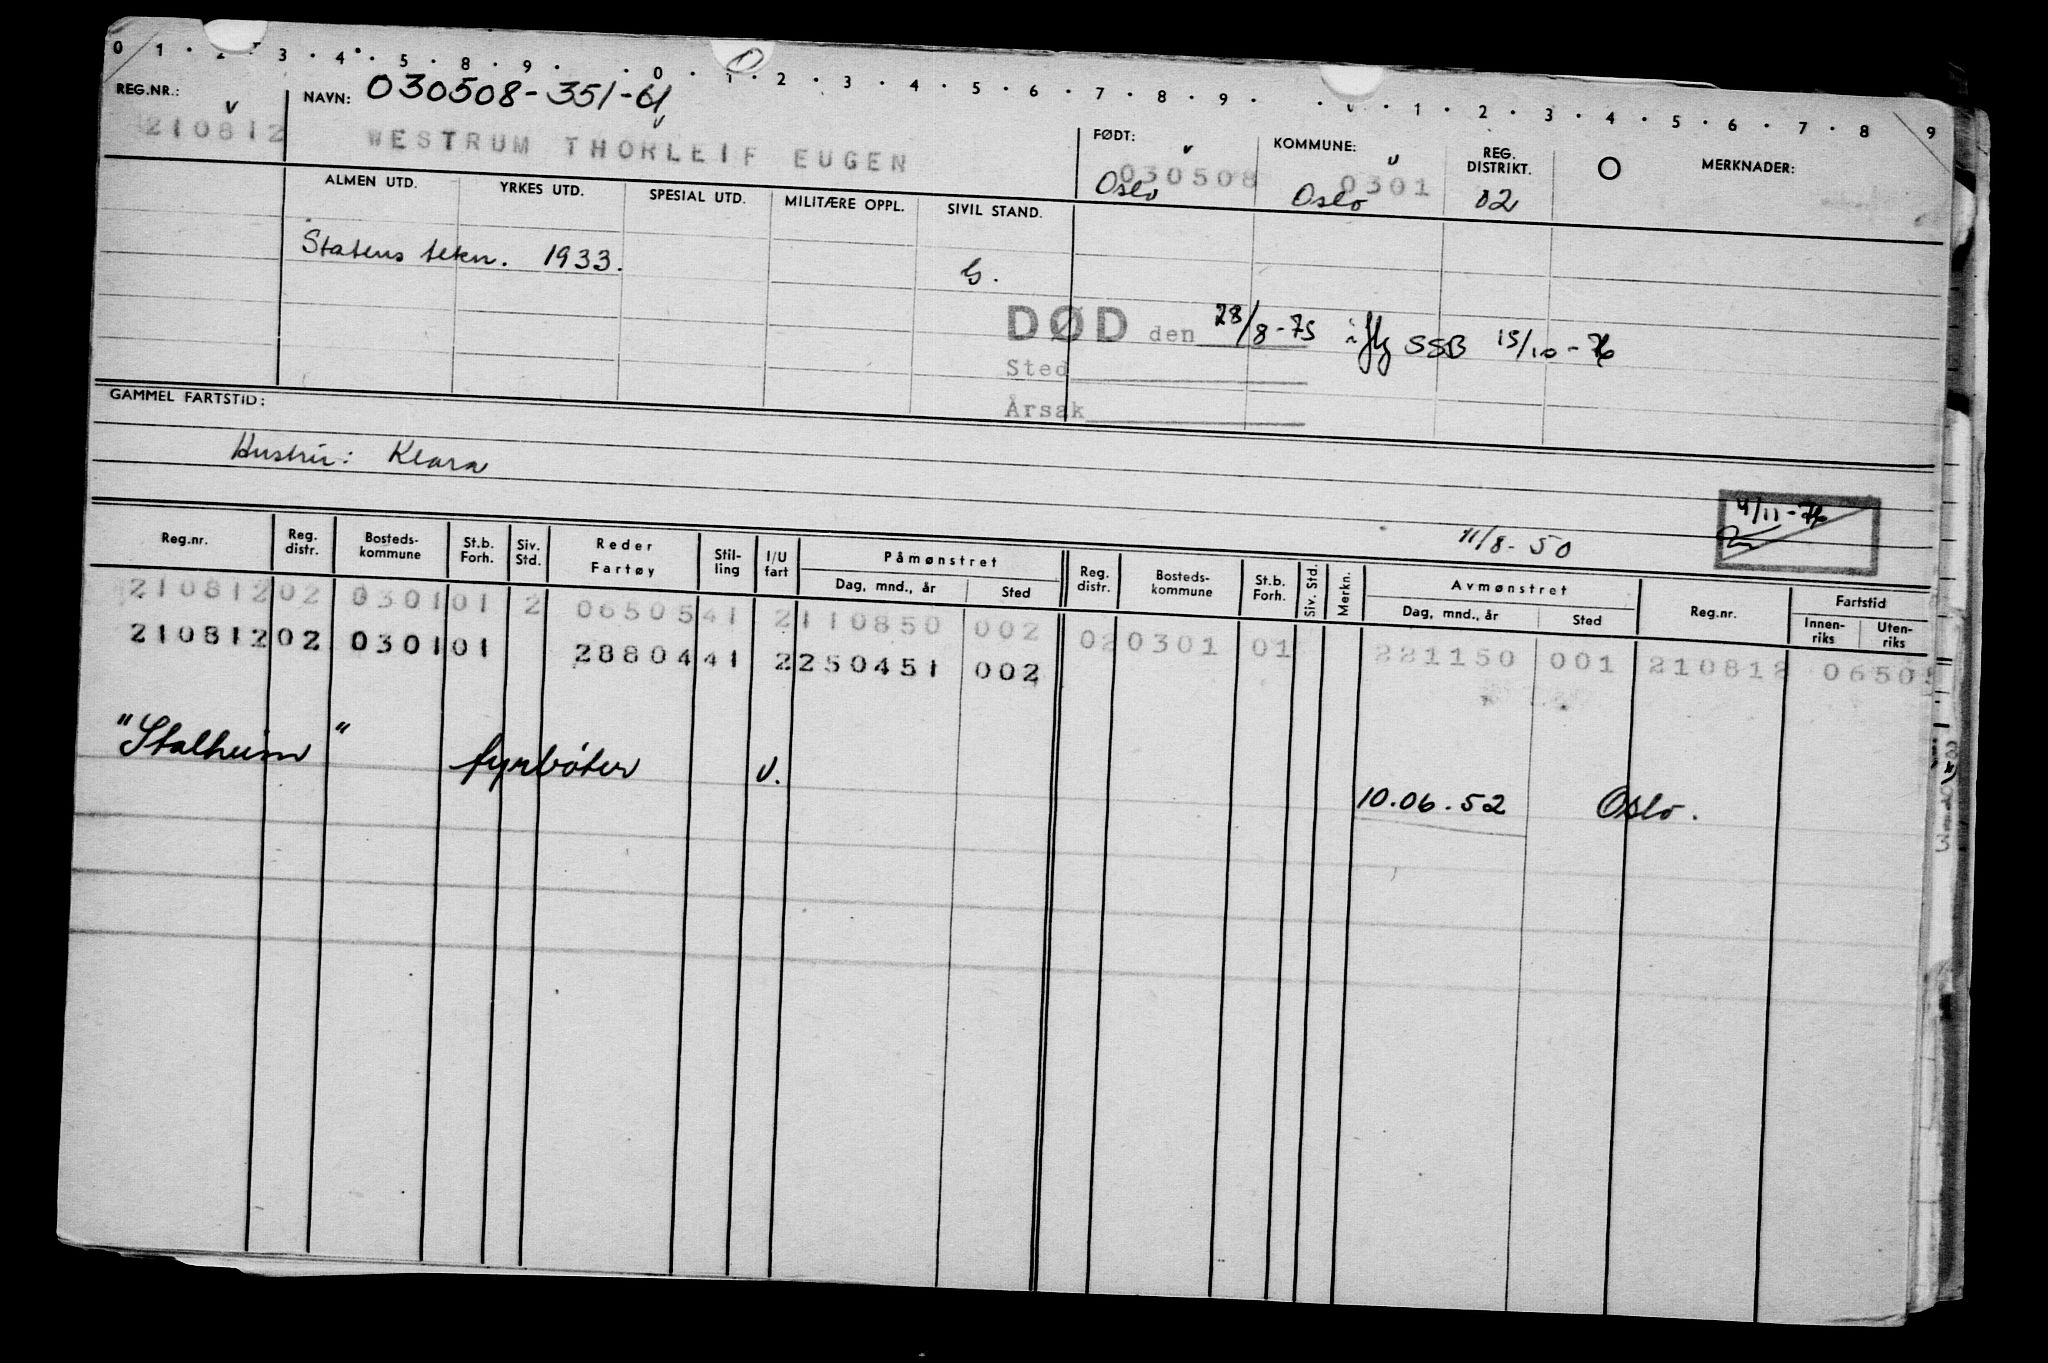 0 1 · 2 · 3 · 4 · 5 · 8 · 9 · · 0 · 1 · 2 · 3 · 4 · 5 · 6 · 7 · 8 · 9 · · 1 · 2 · 3 · 4 · 5 · 6 · 7 · 8 9
REG.NR.: v NAVN: 030508-351-61 v
210812 WESTRUM THORLEIF EUGEN
FØDT: v KOMMUNE: v REG. DISTRIKT. O MERKNADER:
030508 0301
Oslo Oslo 02
ALMEN UTD. YRKES UTD. SPESIAL UTD. MILITÆRE OPPL. SIVIL STAND.
Statens tekn. 1933. G.
DØD den 28/8-75 iflg SSB 15/10-76
Sted
Årsak
GAMMEL FARTSTID:
Hustru: Klara
4/11-76
11/8-50
Reg.nr. Reg. distr. Bosteds-kommune St.b. Forh. Siv. Std. Reder Fartøy Stil-ling I/U fart Påmønstret Dag, mnd., år Sted Reg. distr. Bosteds-kommune St.b. Forh. Siv. Std. Merkn. Avmønstret Dag, mnd., år Sted Reg.nr. Fartstid Innen-riks Uten-riks
210812 02 0301 01 2 06505 41 2 110850 002 02 0301 01 221150 001 210812 0650
210812 02 0301 01 28804 41 2 250451 002
"Stalheim" fyrbøter U. 10.06.52 Oslo.